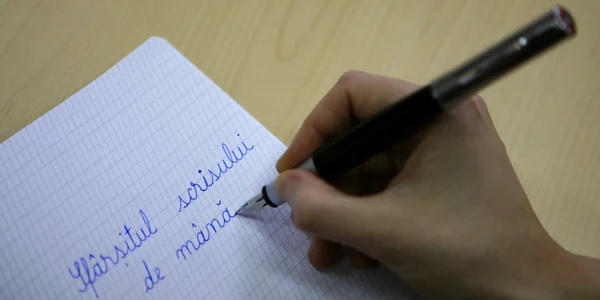 Sfârșitul scrisului
de mână